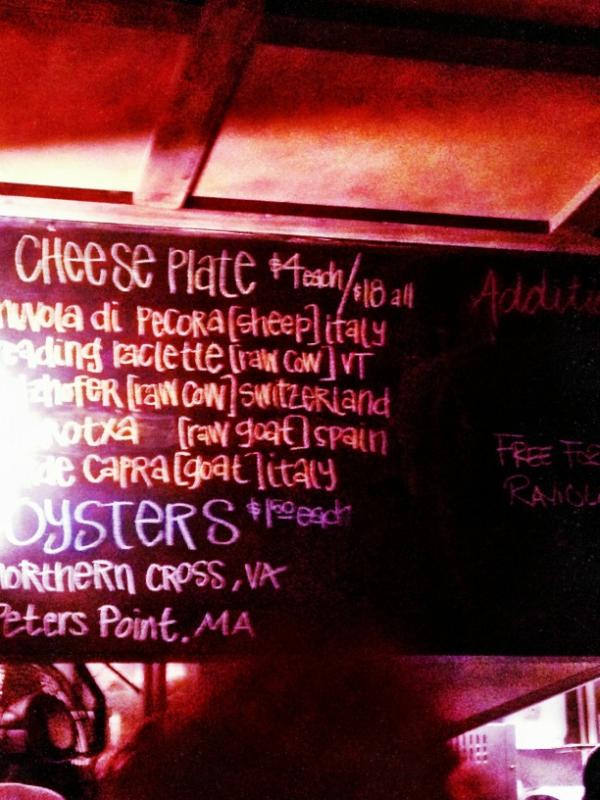 CHeese Plate $4 each/$18 all
nuvola di Pecora [sheep] italy
eading raclette [raw cow] VT
hofer [raw cow] switzerland
rotxa [raw goat] spain
de Capra [goat] italy
OYSTERS $1.50 each
northern cross, VA
Peters Point, MA
Additi
FREE FOR
RAVIOL